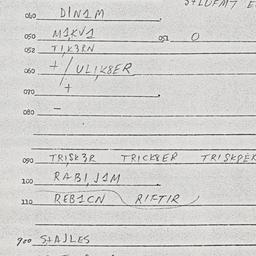 040 DIN1M
050 M1KV1 051 O
052 T1K3RN
060 +/ULIK8ER
070 +
080 –
090 TRISK3R TRICK8ER TRISKPER
100 RABI, J1M
110 REB1CN RIFTIR
900 S+AJLES